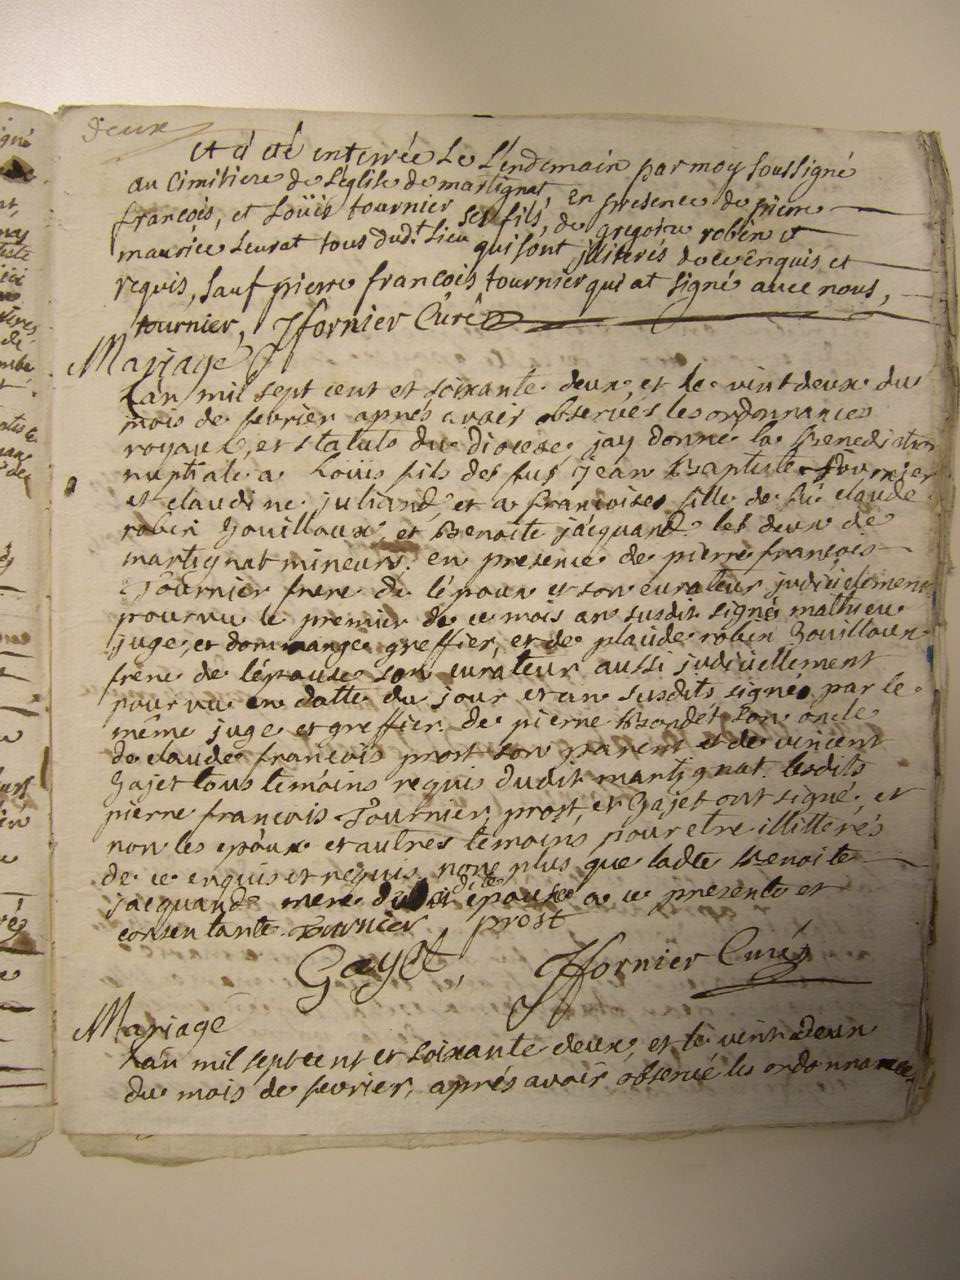 deux
et a été enterrée le lendemain par moy soussigné
au cimitiere de l'église de martignat, en présence de pierre
françois, et Loüis tournier ses fils, de gregoire robin et
maurice Leurat tous dudt. lieu qui sont jlliterés de ce enquis et
requis, sauf pierre françois tournier qui at signé avec nous,
tournier, Jfornier Curé
Mariage
L'an mil sept cent et soixante deux, et le vint deux du
mois de fevrier aprés avoir observés les ordonnances
royaux, et statuts du diocese jay donné la Benediction
nuptiale a Louis fils des fus Jean Baptiste Tournier
et claudine juliand, et a françoises fille de fu claude
robin Gouilloux, et Benoite jacquand les deux de
martignat mineurs. en presence de pierre françois
Tournier frere de lépoux et son curateur judiciellement
pourvu le premier de ce mois an susdit signé mathieu
juge, et dommange greffier, et de plaude robin Gouilloux
frere de lépouse son curateur aussi judiciellement
pourvu en datte du jour et an susdits signés par le
même juge et greffier. de pierre Bondét son oncle
de claude françois prost son parent et de vincent
Gajet tous temoins requis dudit martignat. lesdits
pierre francois Tournier, prost, et Gajet ont signé, et
non les epoux et autres temoins pour etre illitterés
de ce enquis et requis, non plus que ladte Benoite
jacquand mere dite epouse a ce presente et
consentante. Turnier prost
Gayet, Jfornier Curé
Mariage
L'an mil sept cent et soixante deux, et le vint deux
du mois de fevrier, aprés avoir observé les ordonnances